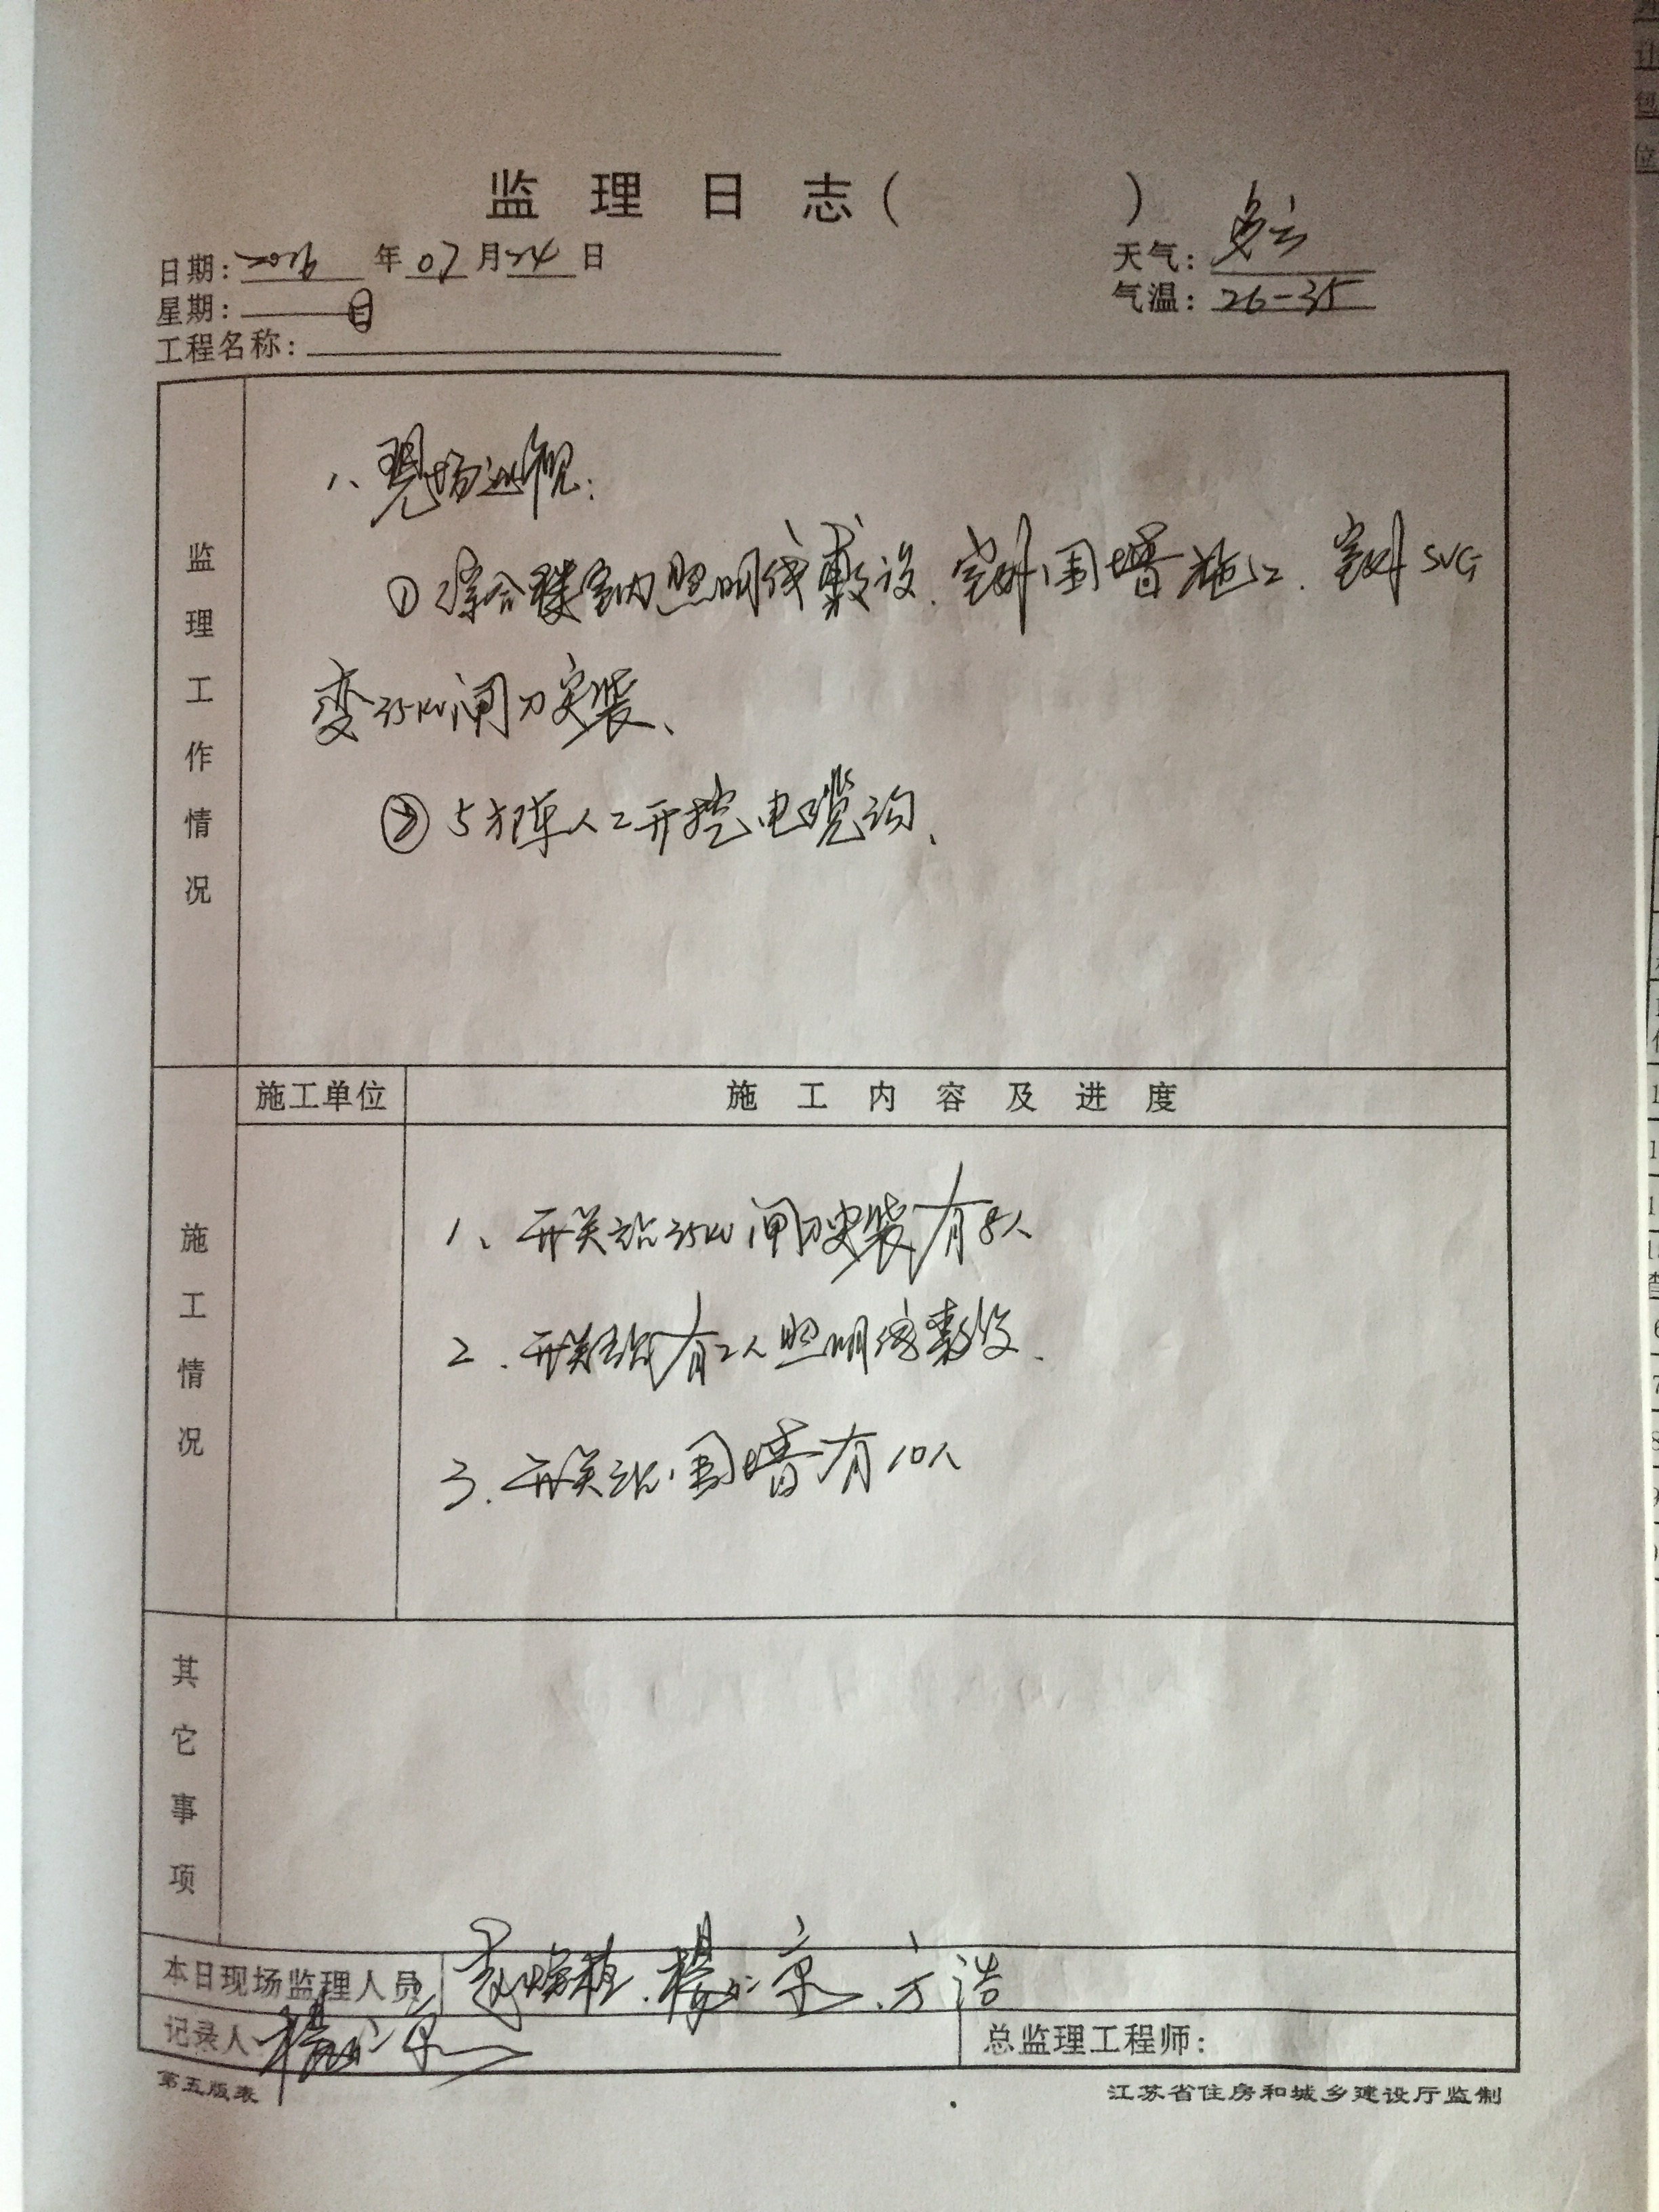 监理日志（　　　）
日期：2016年07月24日　天气：多云
星期：日　气温：26-35
工程名称：
监理工作情况
1、现场巡视：
① 综合楼室内照明线敷设、室外围墙施工、室外SVG
变35KV闸刀安装、
② 5方阵人工开挖电缆沟、
施工单位　施工内容及进度
施工情况
1、开关站35KV闸刀安装有8人
2、开关站有2人照明线敷设、
3、开关站围墙有10人
其它事项
本日现场监理人员　杨　京、方浩
记录人　杨　京　总监理工程师：
第五版表　江苏省住房和城乡建设厅监制